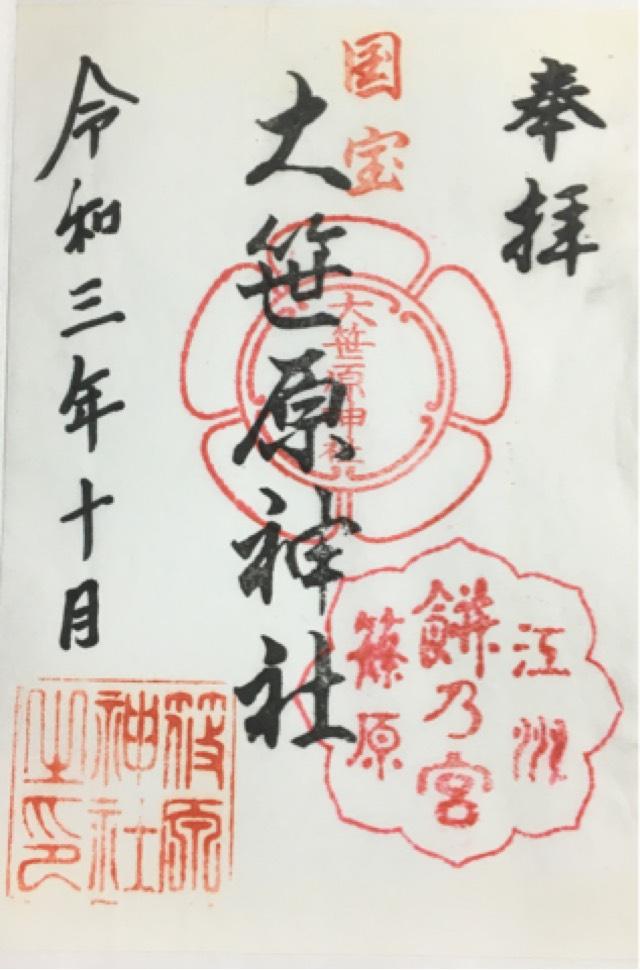 奉拝
国宝
大笹原神社
大笹原神社
江州
餅乃宮
篠原
令和三年十月
篠原
神社
之印